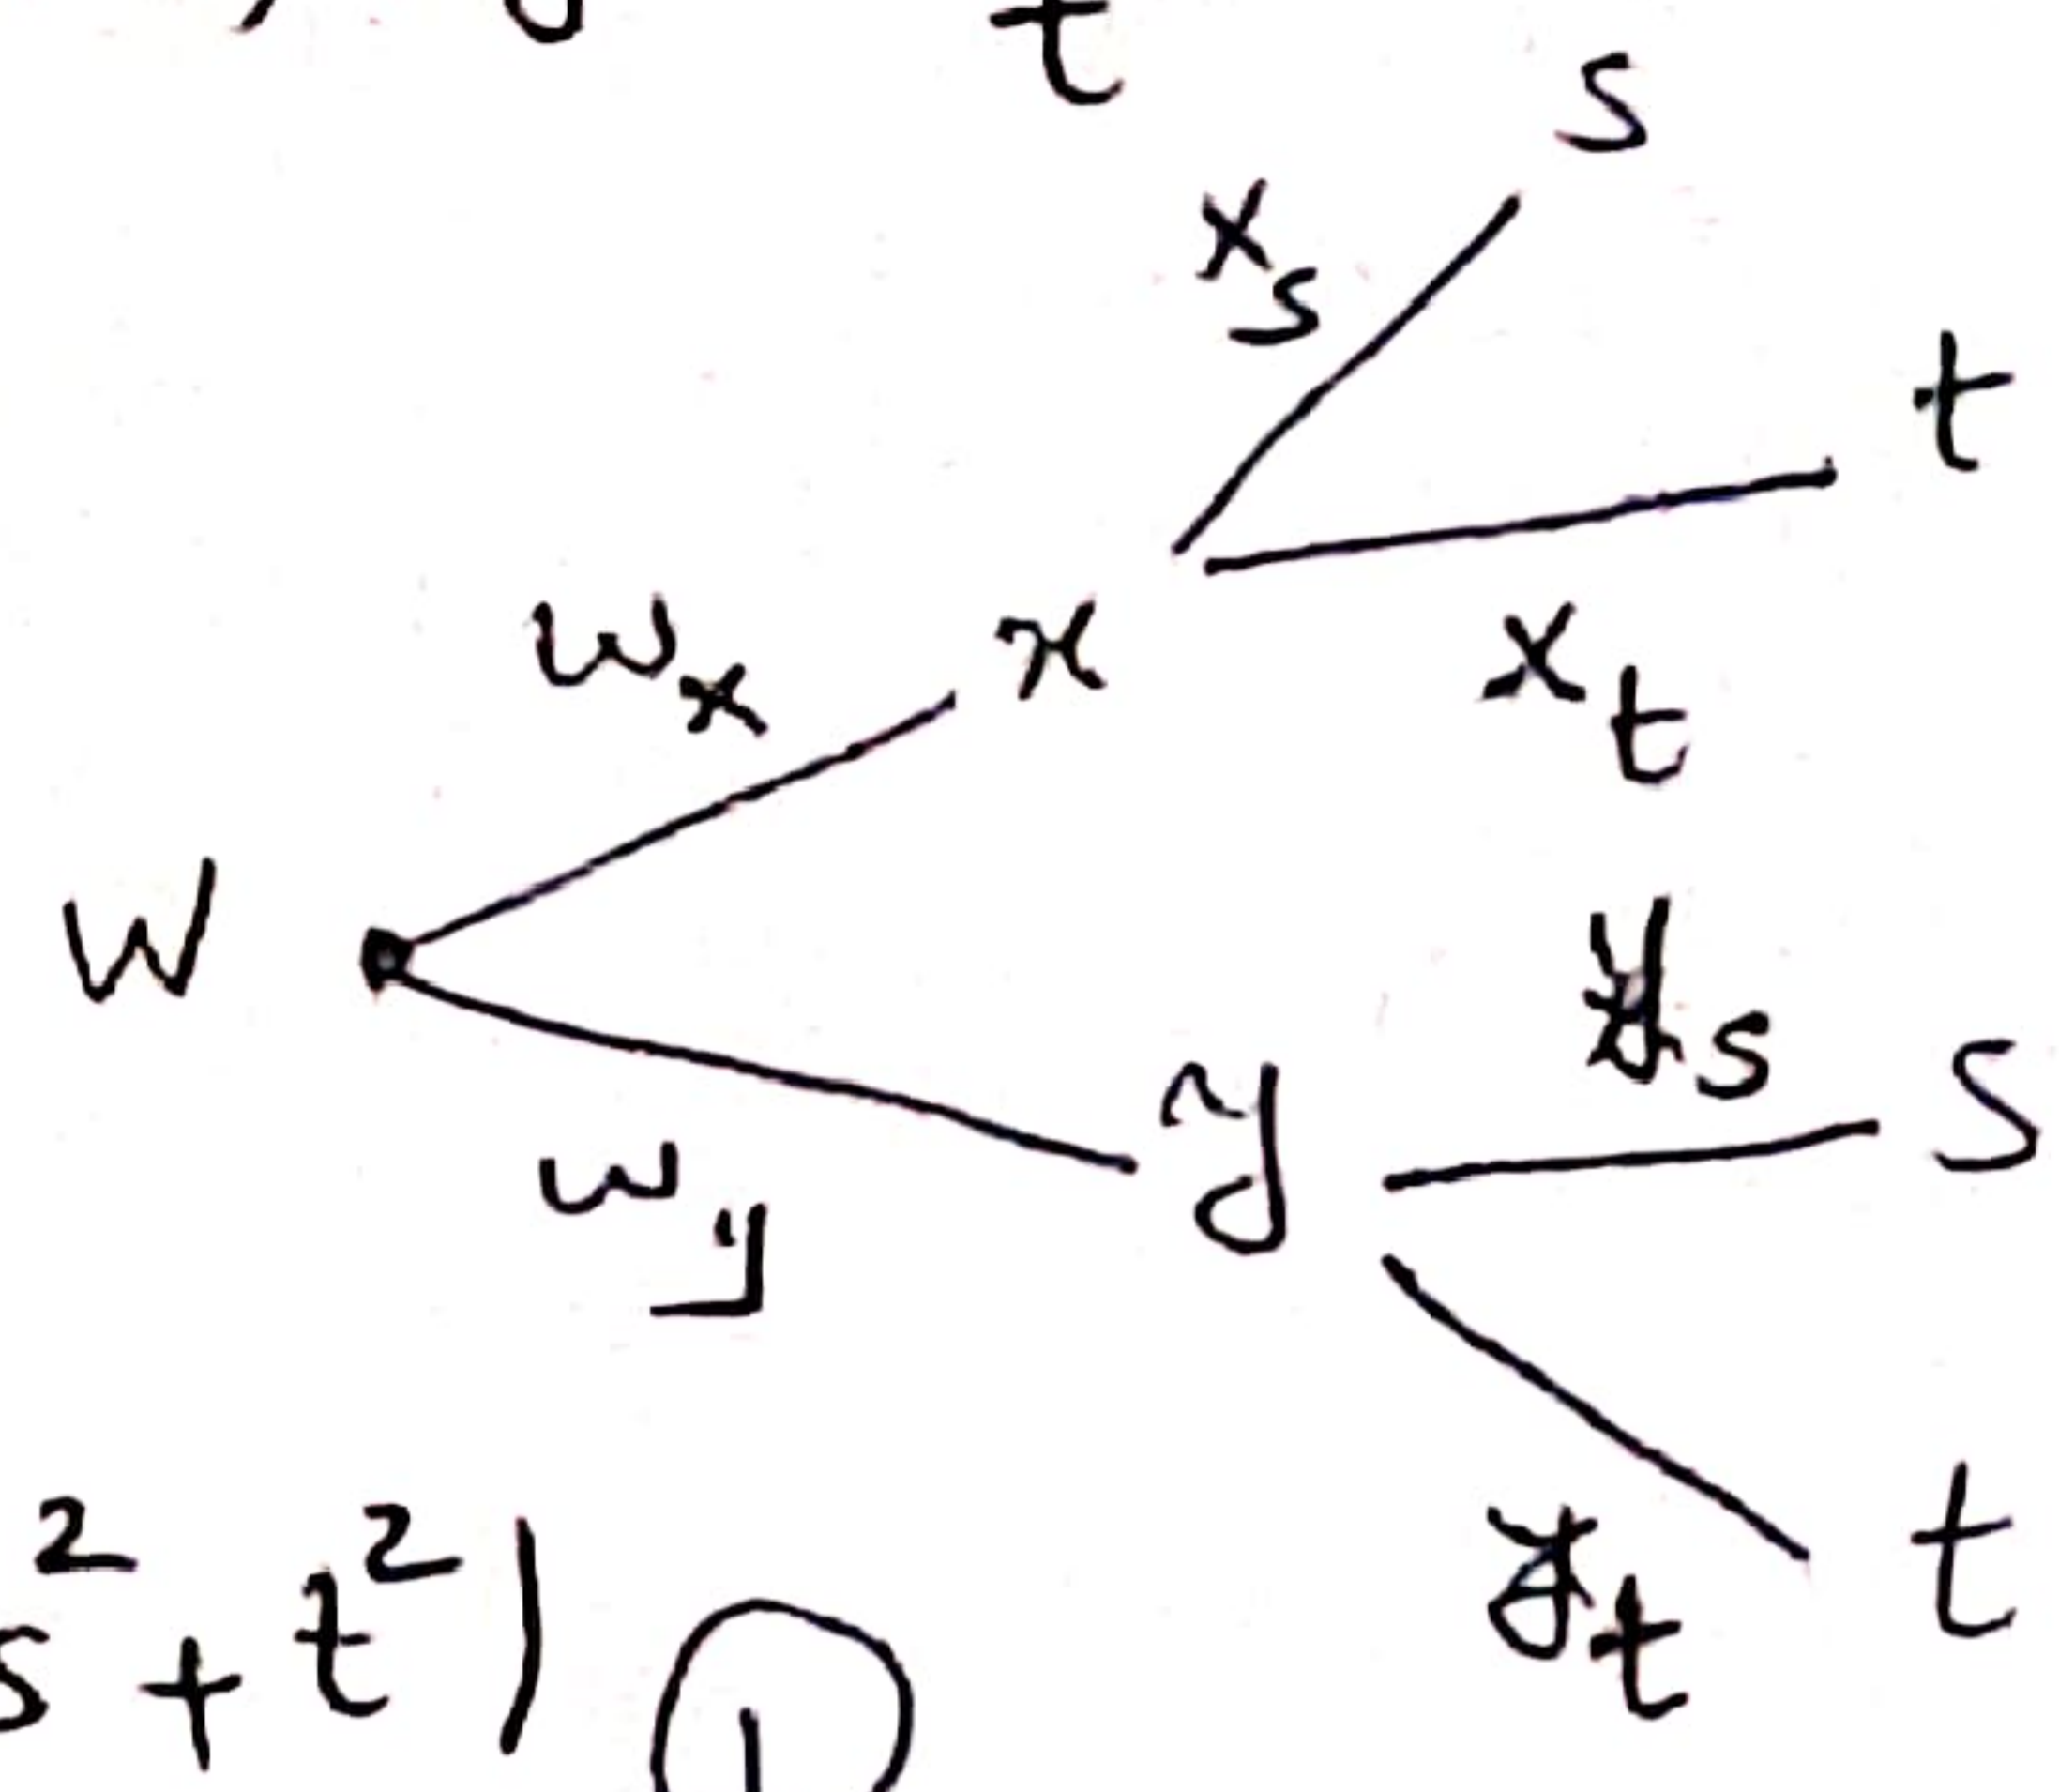 t
s
x_s
t
w_x x
x_t
W
y_s
s
y
w_y
y_t t
s^2 + t^2 )
1